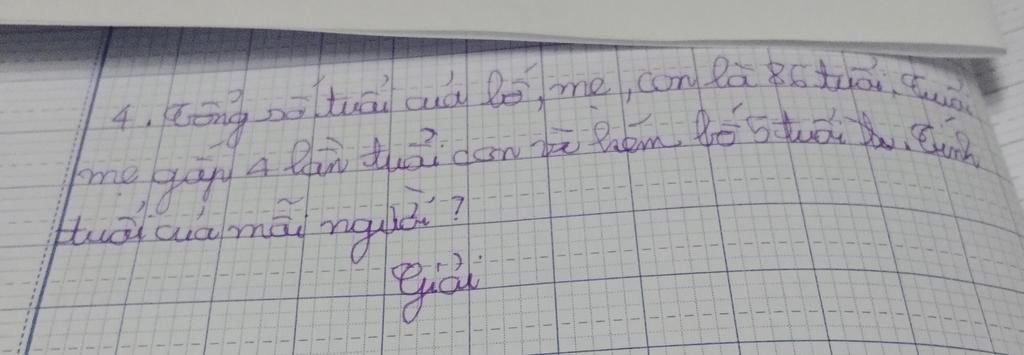 4. Tổng số tuổi của bố, mẹ, con là 86 tuổi. Tuổi
mẹ gấp 4 lần tuổi con và kém bố 5 tuổi. Tính
tuổi của mỗi người?
Giải